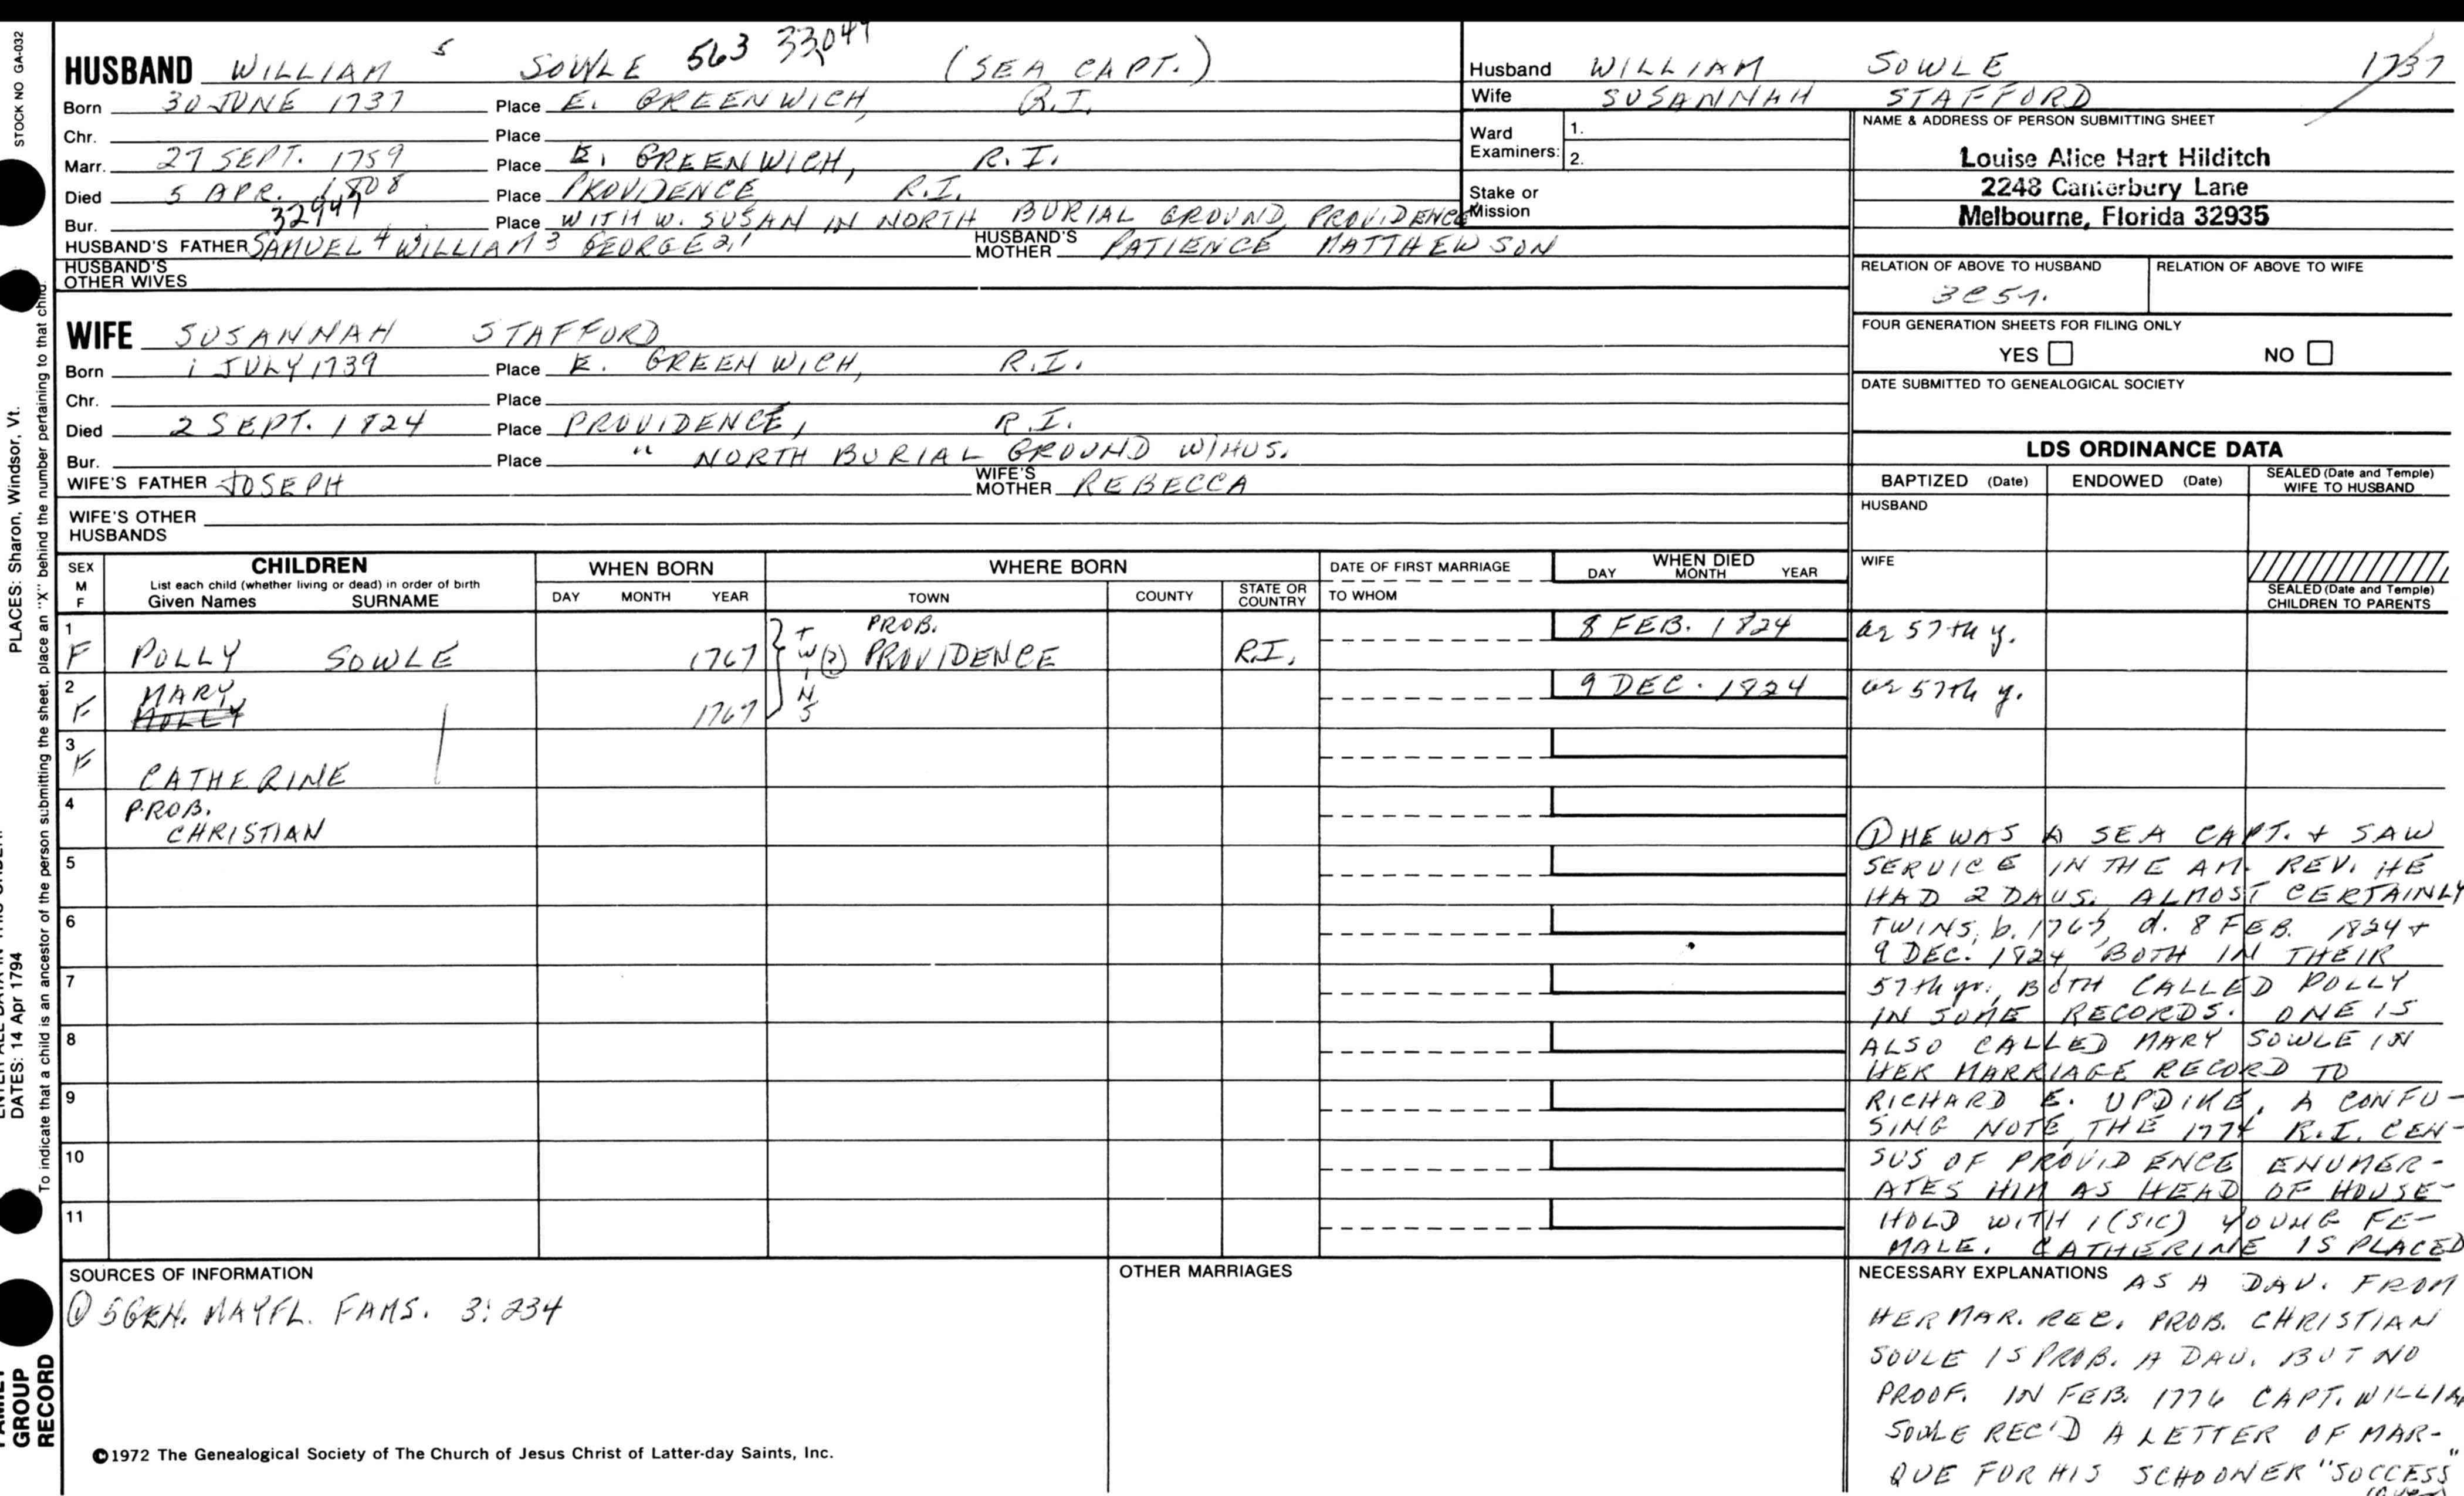 STOCK NO GA-032
PLACES: Sharon, Windsor, Vt.
DATES: 14 Apr 1794
To indicate that a child is an ancestor of the person submitting the sheet, place an "X" behind the number pertaining to that child.
GROUP
RECORD
HUSBAND WILLIAM 5 SOWLE 563 33,047 (SEA CAPT.)
Born 30 JUNE 1737 Place E. GREENWICH, R.I.
Chr. Place
Marr. 27 SEPT. 1759 Place E. GREENWICH, R.I.
Died 5 APR. 1808 Place PROVIDENCE R.I.
32947
Bur. Place WITH W. SUSAN IN NORTH BURIAL GROUND, PROVIDENCE
HUSBAND'S FATHER SAMUEL 4 WILLIAM 3 GEORGE 2,1 HUSBAND'S MOTHER PATIENCE MATTHEWSON
HUSBAND'S OTHER WIVES
WIFE SUSANNAH STAFFORD
Born 1 JULY 1739 Place E. GREENWICH, R.I.
Chr. Place
Died 2 SEPT. 1824 Place PROVIDENCE, R.I.
Bur. Place " NORTH BURIAL GROUND W/HUS.
WIFE'S FATHER JOSEPH WIFE'S MOTHER REBECCA
WIFE'S OTHER HUSBANDS
Husband WILLIAM SOWLE 1737
Wife SUSANNAH STAFFORD
Ward Examiners: 1.
2.
Stake or Mission
NAME & ADDRESS OF PERSON SUBMITTING SHEET
Louise Alice Hart Hilditch
2248 Canterbury Lane
Melbourne, Florida 32935
RELATION OF ABOVE TO HUSBAND RELATION OF ABOVE TO WIFE
FOUR GENERATION SHEETS FOR FILING ONLY
YES NO
DATE SUBMITTED TO GENEALOGICAL SOCIETY
LDS ORDINANCE DATA
BAPTIZED (Date) ENDOWED (Date) SEALED (Date and Temple) WIFE TO HUSBAND
HUSBAND
WIFE
SEALED (Date and Temple) CHILDREN TO PARENTS
SEX M F CHILDREN WHEN BORN WHERE BORN DATE OF FIRST MARRIAGE WHEN DIED
List each child (whether living or dead) in order of birth
Given Names SURNAME DAY MONTH YEAR TOWN COUNTY STATE OR COUNTRY TO WHOM DAY MONTH YEAR
1 F POLLY SOWLE 1767 TWINS (?) PROB. PROVIDENCE R.I. 8 FEB. 1824 57th y.
2 F MARY MOLLY 1767 9 DEC. 1824 57th y.
3 F CATHERINE
4 PROB. CHRISTIAN
5
6
7
8
9
10
11
① HE WAS A SEA CAPT. + SAW
SERVICE IN THE AM. REV. HE
HAD 2 DAUS. ALMOST CERTAINLY
TWINS, b. 1767, d. 8 FEB. 1824 +
9 DEC. 1824, BOTH IN THEIR
57th yr., BOTH CALLED POLLY
IN SOME RECORDS. ONE IS
ALSO CALLED MARY SOWLE IN
HER MARRIAGE RECORD TO
RICHARD E. UPDIKE. A CONFU-
SING NOTE, THE 1774 R.I. CEN-
SUS OF PROVIDENCE ENUMER-
ATES HIM AS HEAD OF HOUSE-
HOLD WITH 1 (SIC) YOUNG FE-
MALE. CATHERINE IS PLACED
NECESSARY EXPLANATIONS AS A DAU. FROM
HER MAR. REC. PROB. CHRISTIAN
SOULE IS PROB. A DAU. BUT NO
PROOF. IN FEB. 1776 CAPT. WILLIAM
SOULE REC'D A LETTER OF MAR-
QUE FOR HIS SCHOONER "SUCCESS"
(over)
SOURCES OF INFORMATION
① 5 GEN. MAYFL. FAMS. 3:234
OTHER MARRIAGES
©1972 The Genealogical Society of The Church of Jesus Christ of Latter-day Saints, Inc.